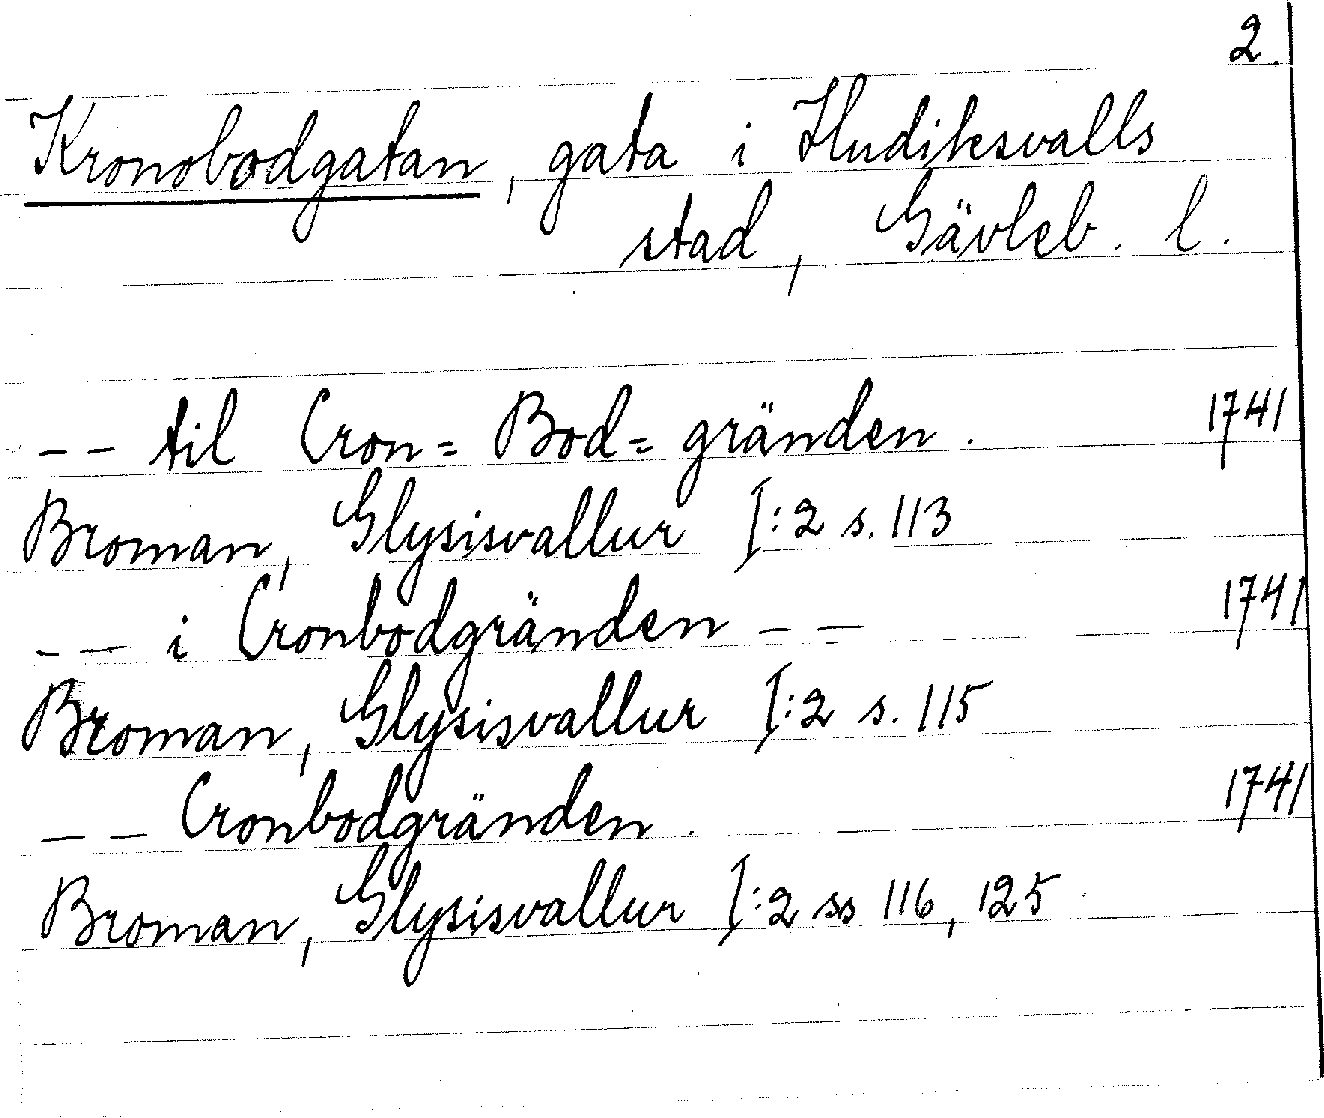 2.
Kronobodgatan, gata i Hudiksvalls
stad, Gävleb. l.
-- til Cron= Bod= gränden. 1741
Broman, Glysisvallur I:2 s. 113
-- i Cronbodgränden -- 1741
Broman, Glysisvallur I:2 s. 115
-- Cronbodgränden. 1741
Broman, Glysisvallur I:2 ss 116, 125